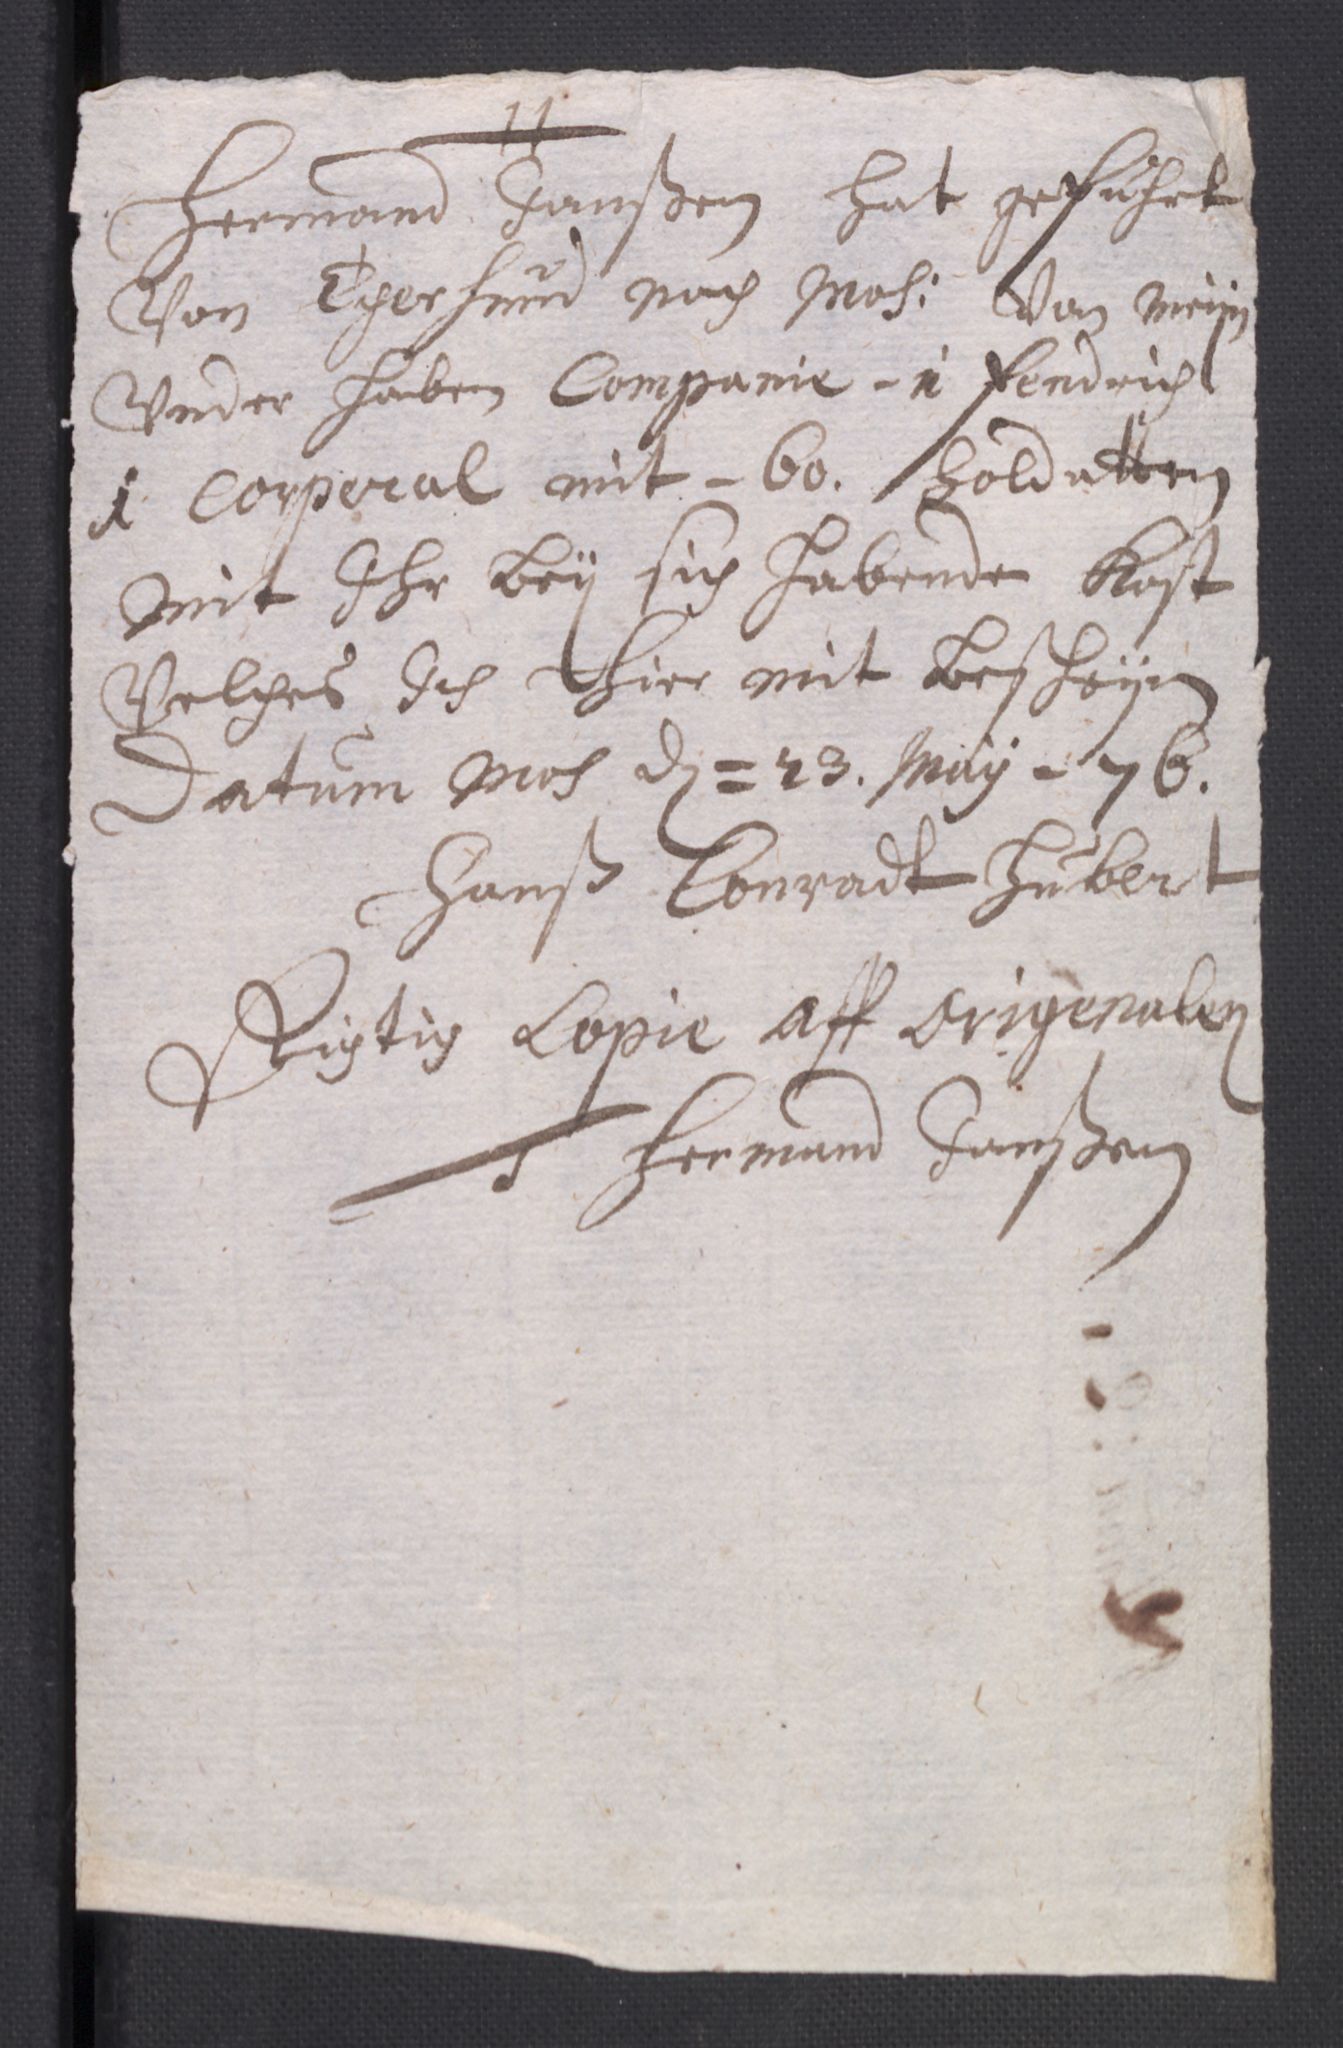 11
Hermand Janßen hat geführt
Von Egersund nach Mos: Von meijn
Vnder haben Companie - 1 fendrich
1 Corperal mit - 60. Soldatten
mit Ihr beÿ sich habende Kost
Velches Ich Hier mit besheÿn
Datum Mos d = 23. Maÿ - 76.
Hanß Conradt Hubert
Rigtig Copie aff origenalen
Hermand Janßen